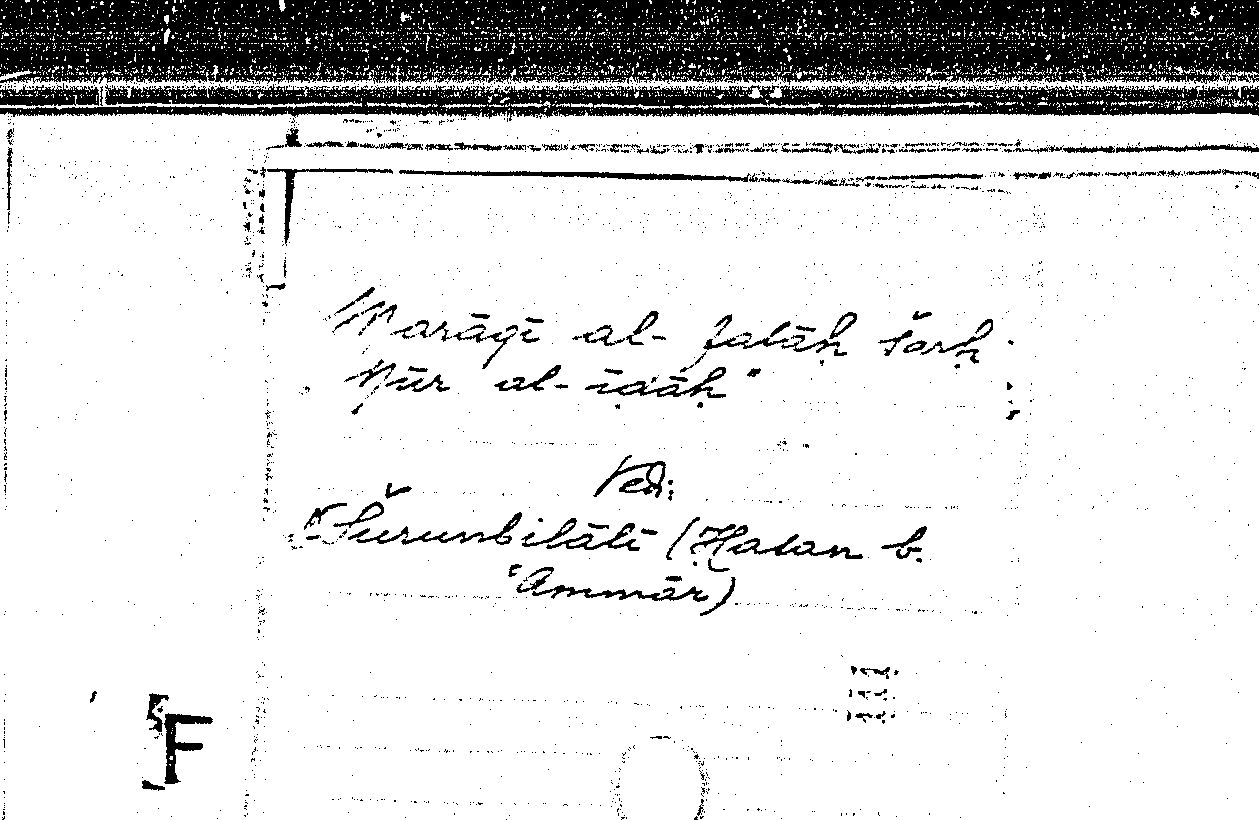 Marāqī al-falāḥ šarḥ
Nūr al-īḍāḥ"
Ved:
Šurunbilālī (Ḥasan b.
ʿAmmār)
F